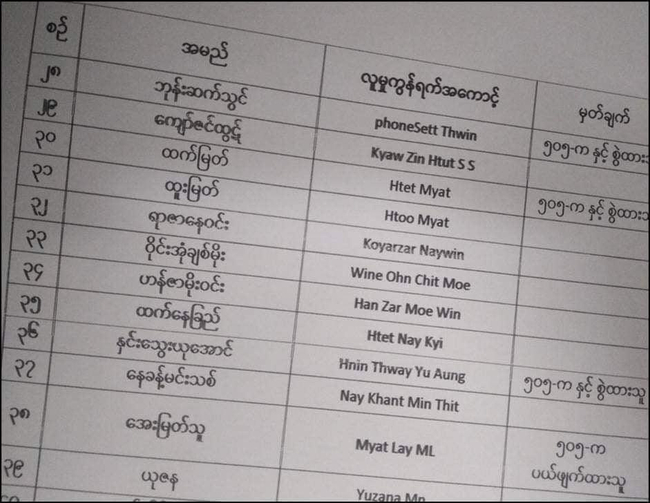 စဉ် အမည် လူမှုကွန်ရက်အကောင့် မှတ်ချက်
၂၈ ဘုန်းဆက်သွင် phoneSett Thwin ၅၀၅-က နှင့် စွဲထား
၂၉ ကျော်ဇင်ထွဋ် Kyaw Zin Htut S S
၃၀ ထက်မြတ် Htet Myat ၅၀၅-က နှင့် စွဲထား
၃၁ ထူးမြတ် Htoo Myat
၃၂ ရာဇာနေဝင်း Koyarzar Naywin
၃၃ ဝိုင်းအုံချစ်မိုး Wine Ohn Chit Moe
၃၄ ဟန်ဇာမိုးဝင်း Han Zar Moe Win
၃၅ ထက်နေခြည် Htet Nay Kyi
၃၆ နှင်းသွေးယုအောင် Hnin Thway Yu Aung ၅၀၅-က နှင့် စွဲထားသူ
၃၇ နေခန့်မင်းသစ် Nay Khant Min Thit
၃၈ အေးမြတ်သူ Myat Lay ML ၅၀၅-က
ပယ်ဖျက်ထားသူ
၃၉ ယုဇန Yuzana Mn